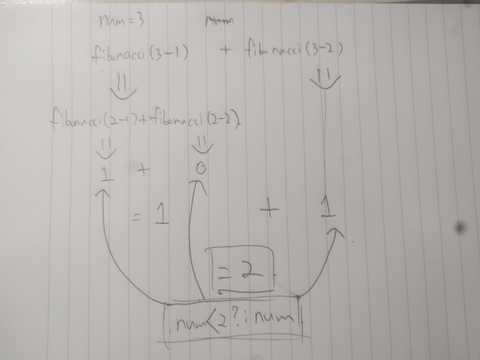 num=3
fibonacci(3-1) + fibonacci(3-2)
fibonacci(2-1)+fibonacci(2-2)
1 + 0
= 1 + 1
= 2
num<2?:num